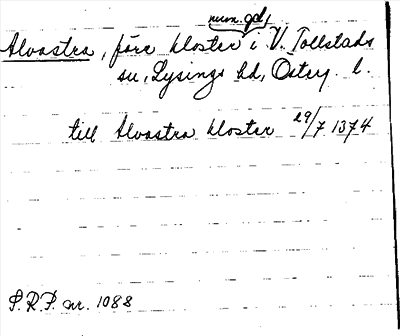 num. gd,
Alvastra, förr kloster i V. Tollstads
sn, Lysings hd, Östерg. l.
till Alvastra kloster 29/7 1374
S.R.P. nr. 1088